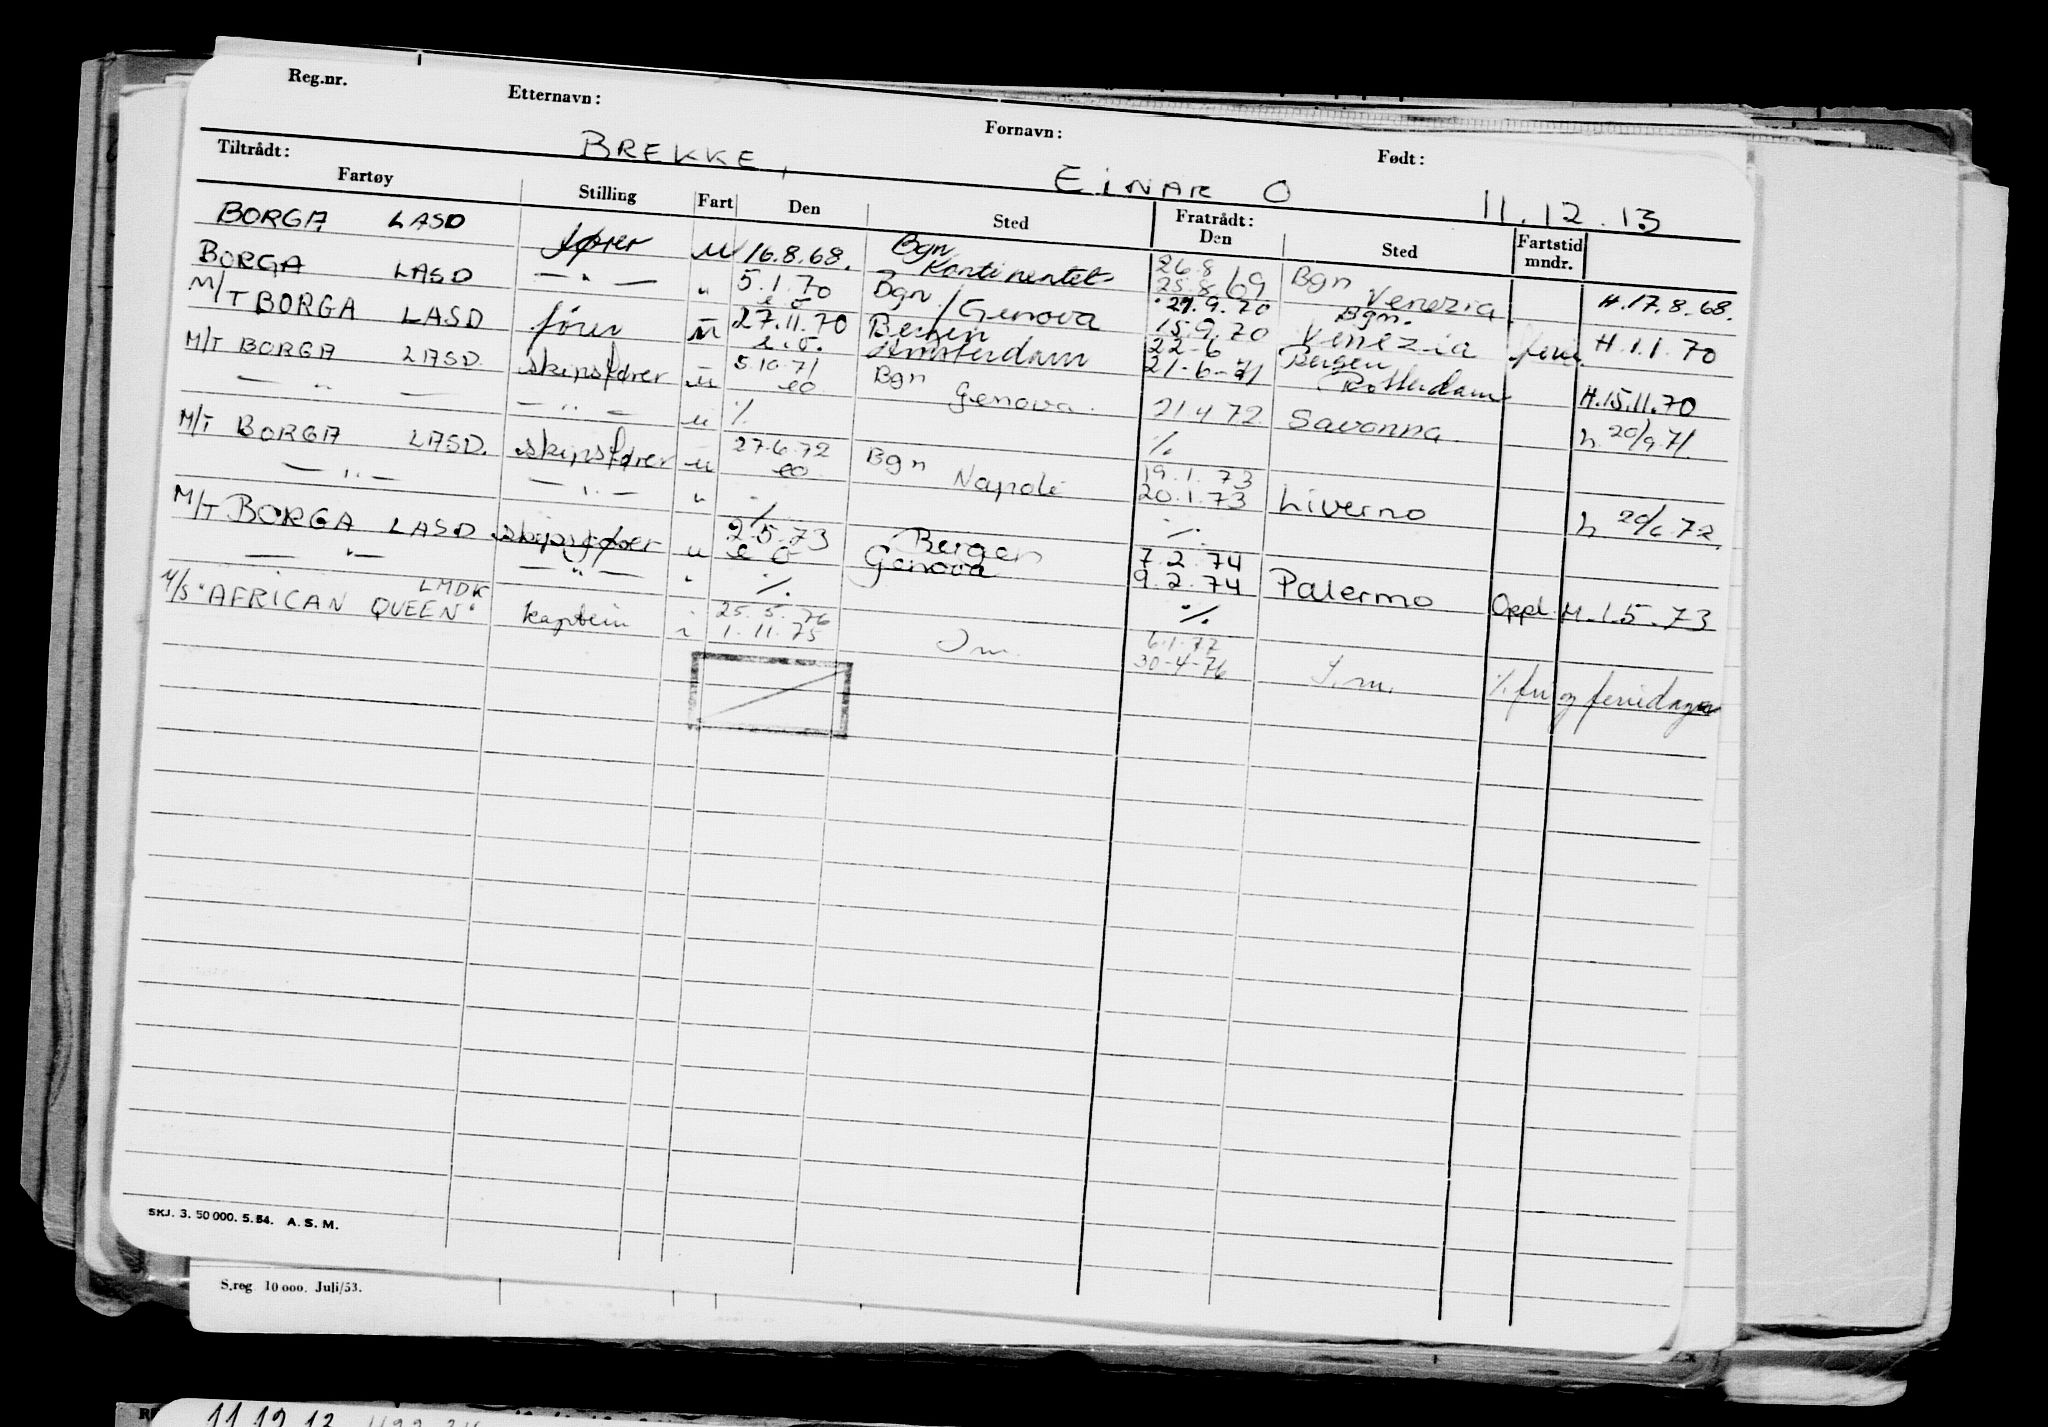 Reg.nr. Etternavn: Fornavn: Født:
BREKKE, EINAR O 11.12.13
Tiltrådt: Fratrådt:
Fartøy Stilling Fart Den Sted Den Sted Fartstid mndr.
BORGA LASD fører u 16.8.68. Bgn Kontinentet 26.8 25.8/69 Bgn Venezia H.17.8.68.
BORGA LASD — " — " 5.1.70 e o Bgn / Genova 21.9.70 15.9.70 Bgn. Venezia ferie H.1.1.70
M/T BORGA LASD fører u 27.11.70 e.o. Bergen Amsterdam 22-6 21-6-71 Bergen Rotterdam H.15.11.70
M/T BORGA LASD. skipsfører u 5.10.71 eo Bgn Genova. 21.4.72 Savonna h 20/9.71.
— " — — " — u %. %.
M/T BORGA LASD. skipsfører u 27.6.72 eo Bgn Napoli 19.1.73 20.1.73 Liverno h 20/6.72.
— " — — " — " %. %.
M/T BORGA LASD skipsfører u 2.5.73 e o Bergen Genova 7.2.74 9.2.74 Palermo Oppl. H.1.5.73
— " — — " — " %. %.
M/S "AFRICAN QUEEN" LMDK kaptein 25.5.76 1.11.75 6.1.77 30-4-76 %. fri og feriedager
SKJ. 3. 50 000. 5. 54. A. S. M.
S.reg 10 000. Juli/53.
11.12.13